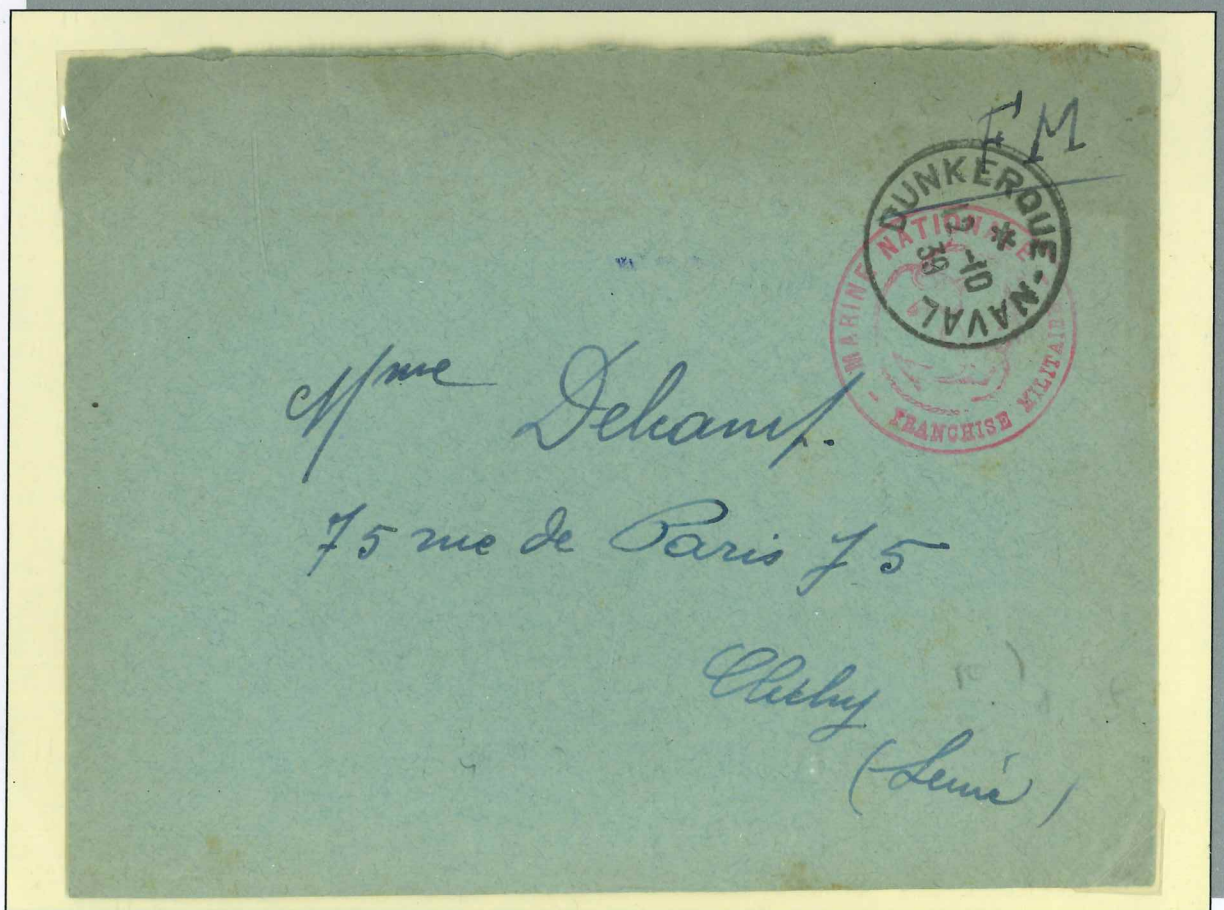 FM
DUNKERQUE-NAVAL
12 *
-10
39
MARINE NATIONALE
- FRANCHISE MILITAIRE
Mme Dehamp.
75 rue de Paris 75
Clichy
(Seine)